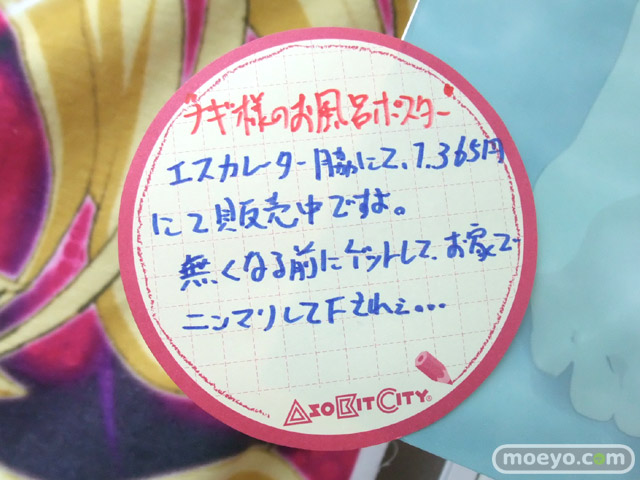 "ナギ様のお風呂ポスター"
エスカレーター脇にて、1.365円
にて販売中ですよ。
無くなる前にゲットして、お家で
ニンマリして下されぇ...
ASOBITCITY®
moeyo.com